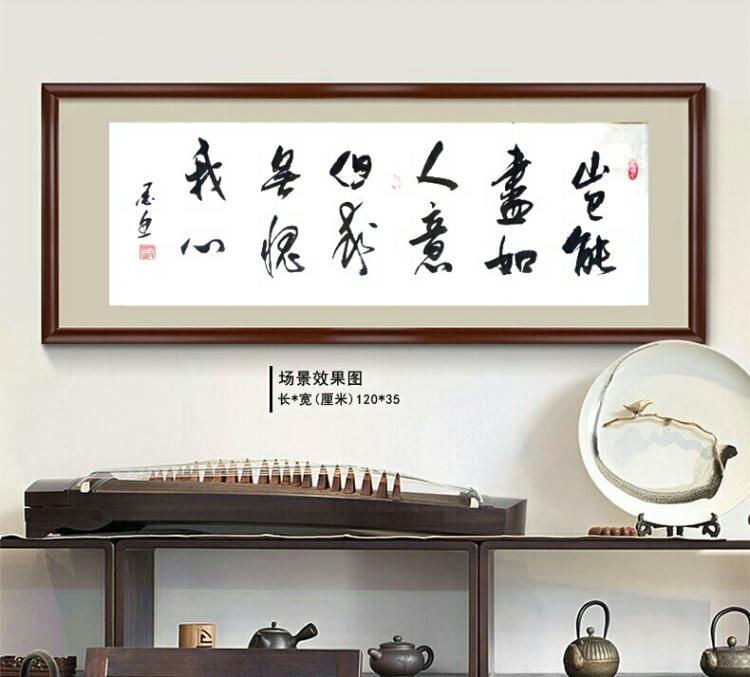 岂能
盡如
人意
但求
無愧
我心
场景效果图
长*宽(厘米)120*35